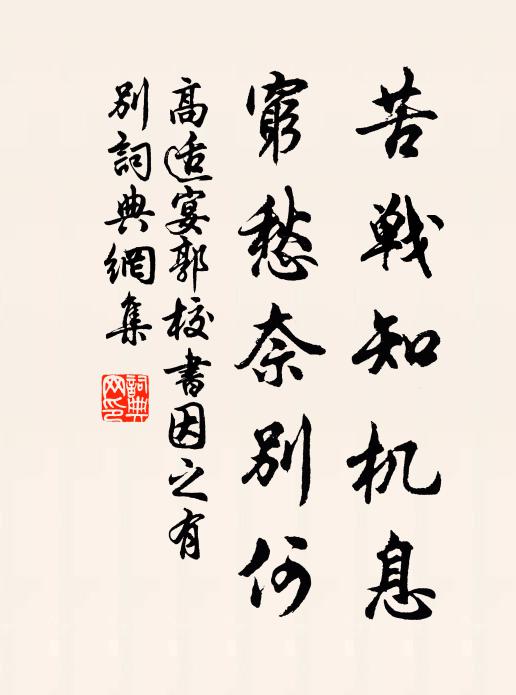 苦戦知机息
窮愁奈別何
高适宴郭校書因之有
別詞典網集
詞典網印